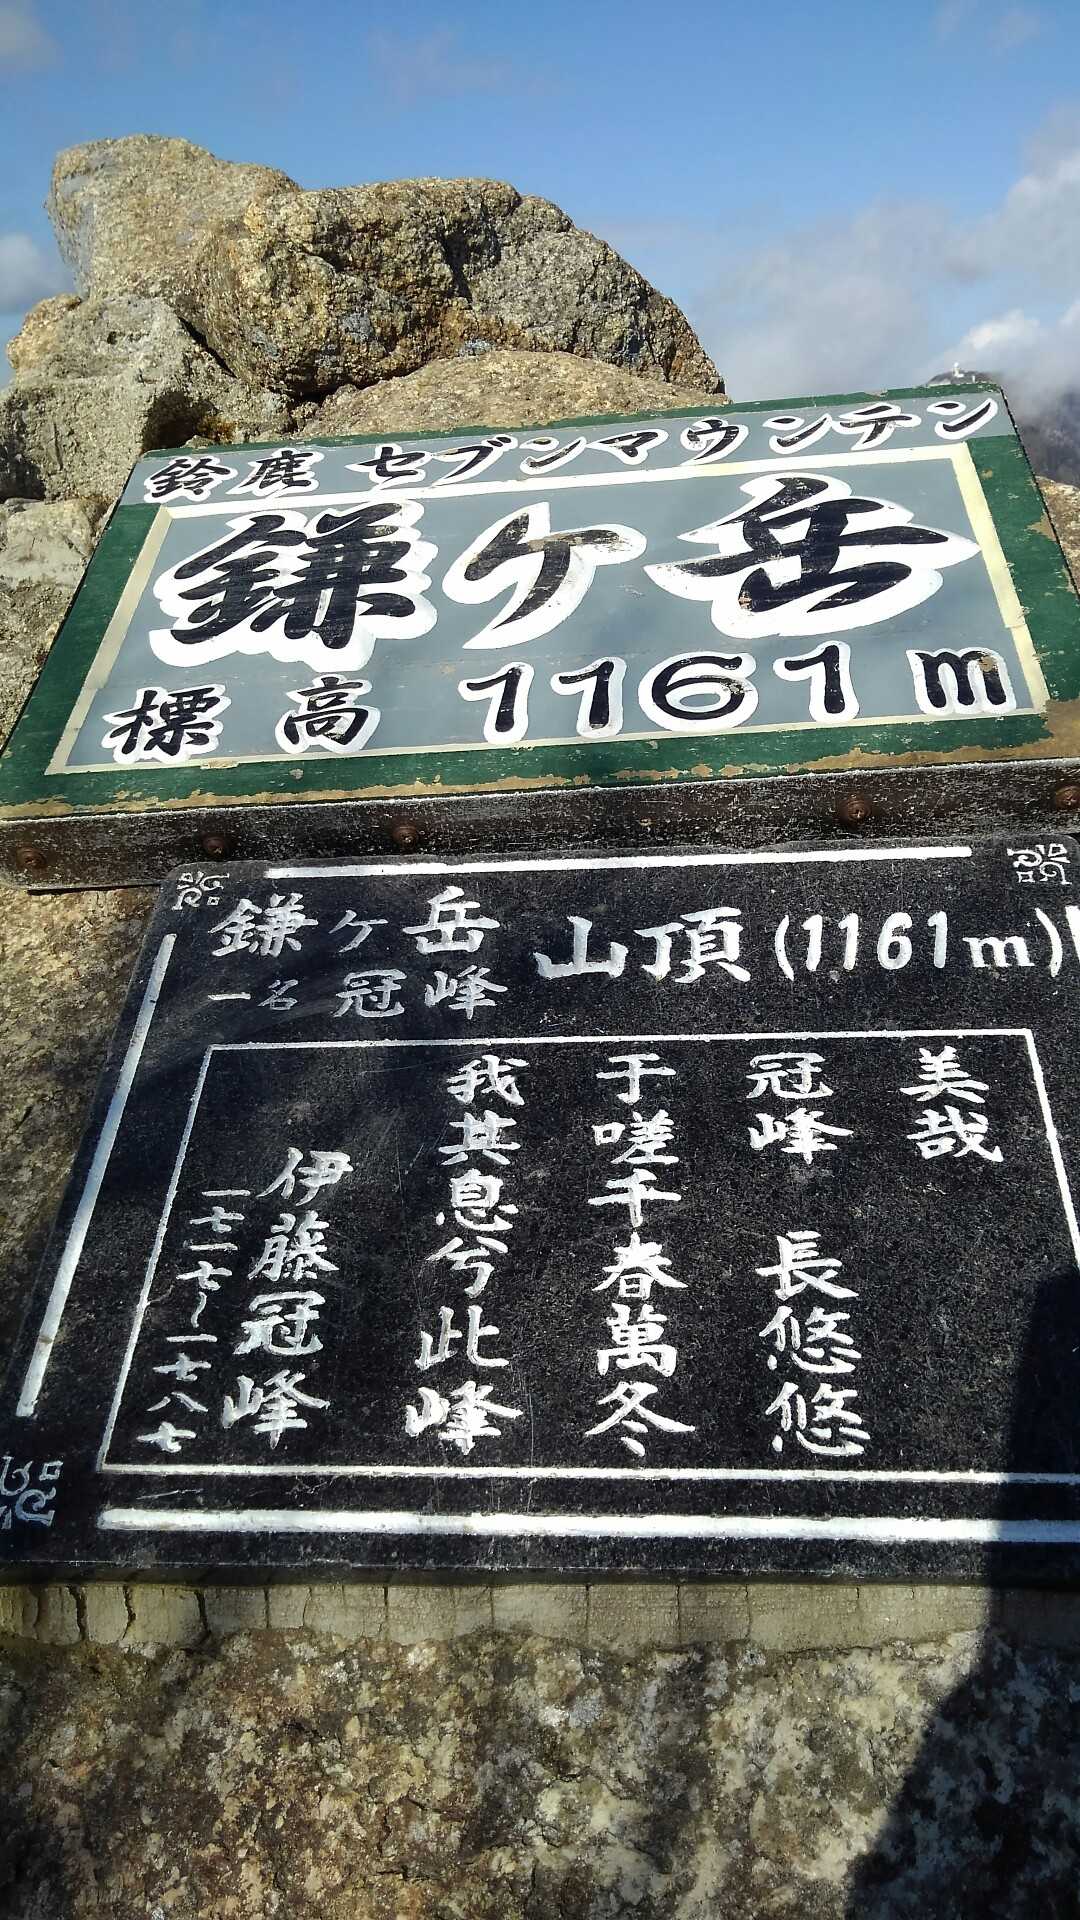 鈴鹿 セブンマウンテン
鎌ケ岳
標高 1161m
鎌ケ岳 山頂(1161m)
一名 冠峰
美哉
冠峰 長悠悠
于嗟千春萬冬
我其息兮此峰
伊藤冠峰
一七一七〜一七八七